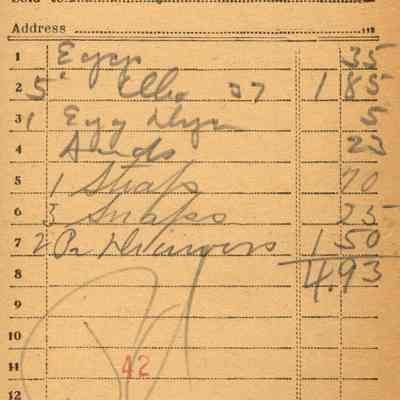 Sold to
Address
1 Eggs 35
2 5 37 1 85
3 1 Egg Dye 5
4 23
5 1 70
6 3 Snaps 25
7 2 Pr 1 50
8 4.93
9
10
11 42
12